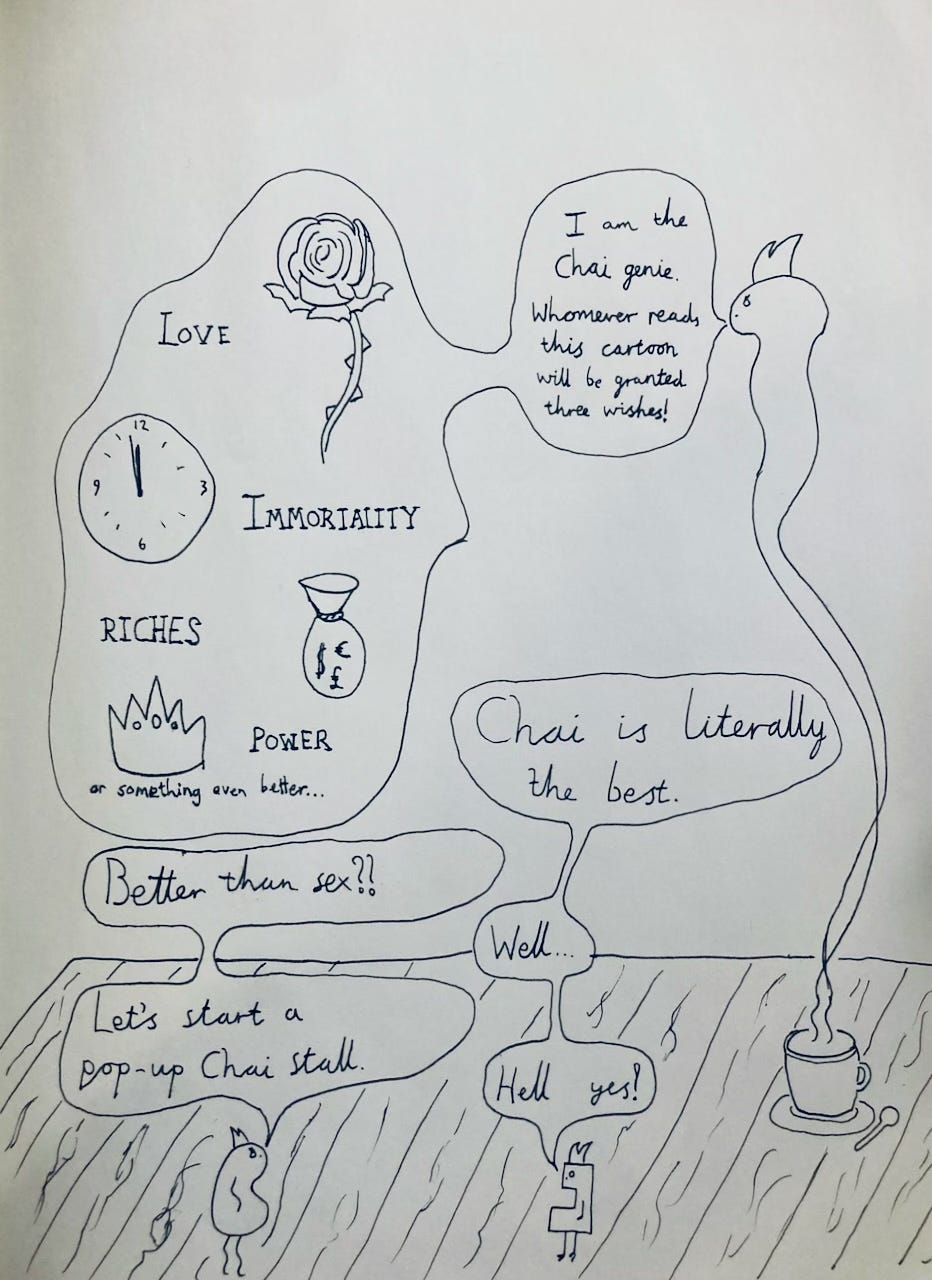 I am the
Chai genie.
Whomever reads
this cartoon
will be granted
three wishes!
LOVE
12
9 3
6
IMMORTALITY
RICHES
$ €
£
POWER
or something even better...
Chai is literally
the best.
Better than sex??
Well...
Let's start a
pop-up Chai stall.
Hell yes!